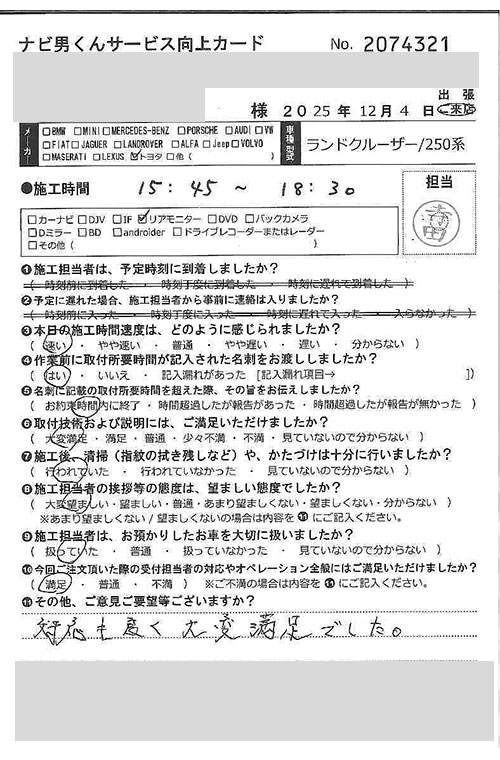 ナビ男くんサービス向上カード No. 2074321
出張
様 2025年12月4日 ご来店
メーカー □BMW □MINI □MERCEDES-BENZ □PORSCHE □AUDI □VW
□FIAT □JAGUER □LANDROVER □ALFA □Jeep □VOLVO
□MASERATI □LEXUS ☑トヨタ □他（ ）
車種型式 ランドクルーザー/250系
●施工時間 15:45 ~ 18:30
担当
□カーナビ □DJV □IF ☑リアモニター □DVD □バックカメラ
□Dミラー □BD □androider □ドライブレコーダーまたはレーダー
□その他（ ）
❶施工担当者は、予定時刻に到着しましたか？
（ 時刻前に到着した ・ 時刻丁度に到着した ・ 時刻に遅れて到着した ）
❷予定に遅れた場合、施工担当者から事前に連絡は入りましたか？
（ 時刻前に入った ・ 時刻丁度に入った ・ 時刻に遅れて入った ・ 入らなかった ）
❸本日の施工時間速度は、どのように感じられましたか？
（ 速い ・ やや速い ・ 普通 ・ やや遅い ・ 遅い ・ 分からない ）
❹作業前に取付所要時間が記入された名刺をお渡ししましたか？
（ はい ・ いいえ ・ 記入漏れがあった [記入漏れ項目→ ]）
❺名刺に記載の取付所要時間を超えた際、その旨をお伝えしましたか？
（ お約束時間内に終了 ・ 時間超過したが報告があった ・ 時間超過したが報告が無かった ）
❻取付技術および説明には、ご満足いただけましたか？
（ 大変満足 ・ 満足 ・ 普通 ・ 少々不満 ・ 不満 ・ 見ていないので分からない ）
❼施工後、清掃（指紋の拭き残しなど）や、かたづけは十分に行いましたか？
（ 行われていた ・ 行われていなかった ・ 見ていないので分からない ）
❽施工担当者の挨拶等の態度は、望ましい態度でしたか？
（ 大変望ましい・望ましい・普通・あまり望ましくない・望ましくない・分からない ）
※あまり望ましくない / 望ましくないの場合は内容を⓫にご記入ください。
❾施工担当者は、お預かりしたお車を大切に扱いましたか？
（ 扱っていた ・ 普通 ・ 扱っていなかった ・ 見ていないので分からない ）
❿今回ご注文頂いた際の受付担当者の対応やオペレーション全般にはご満足いただけましたか？
（ 満足 ・ 普通 ・ 不満 ） ※ご不満の場合は内容を⓫にご記入ください。
⓫その他、ご意見ご要望等ございますか？
対応も良く大変満足でした。